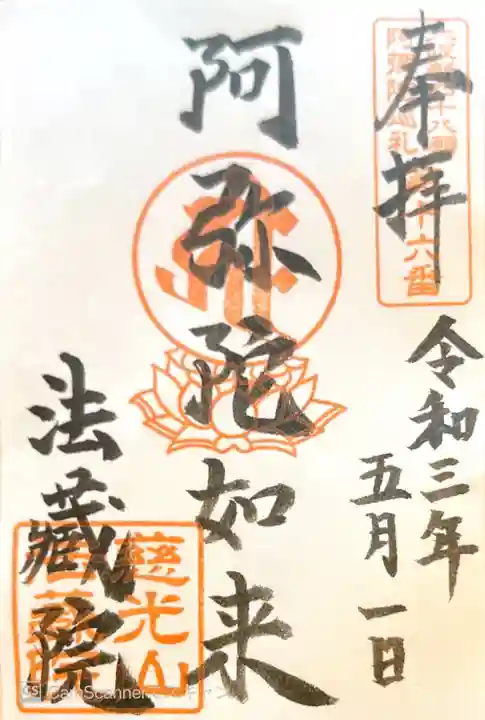 奉拝
阿彌陀巡礼
十六番
令和三年
五月一日
阿弥陀如来
法蔵院
慈光山
CamScanner